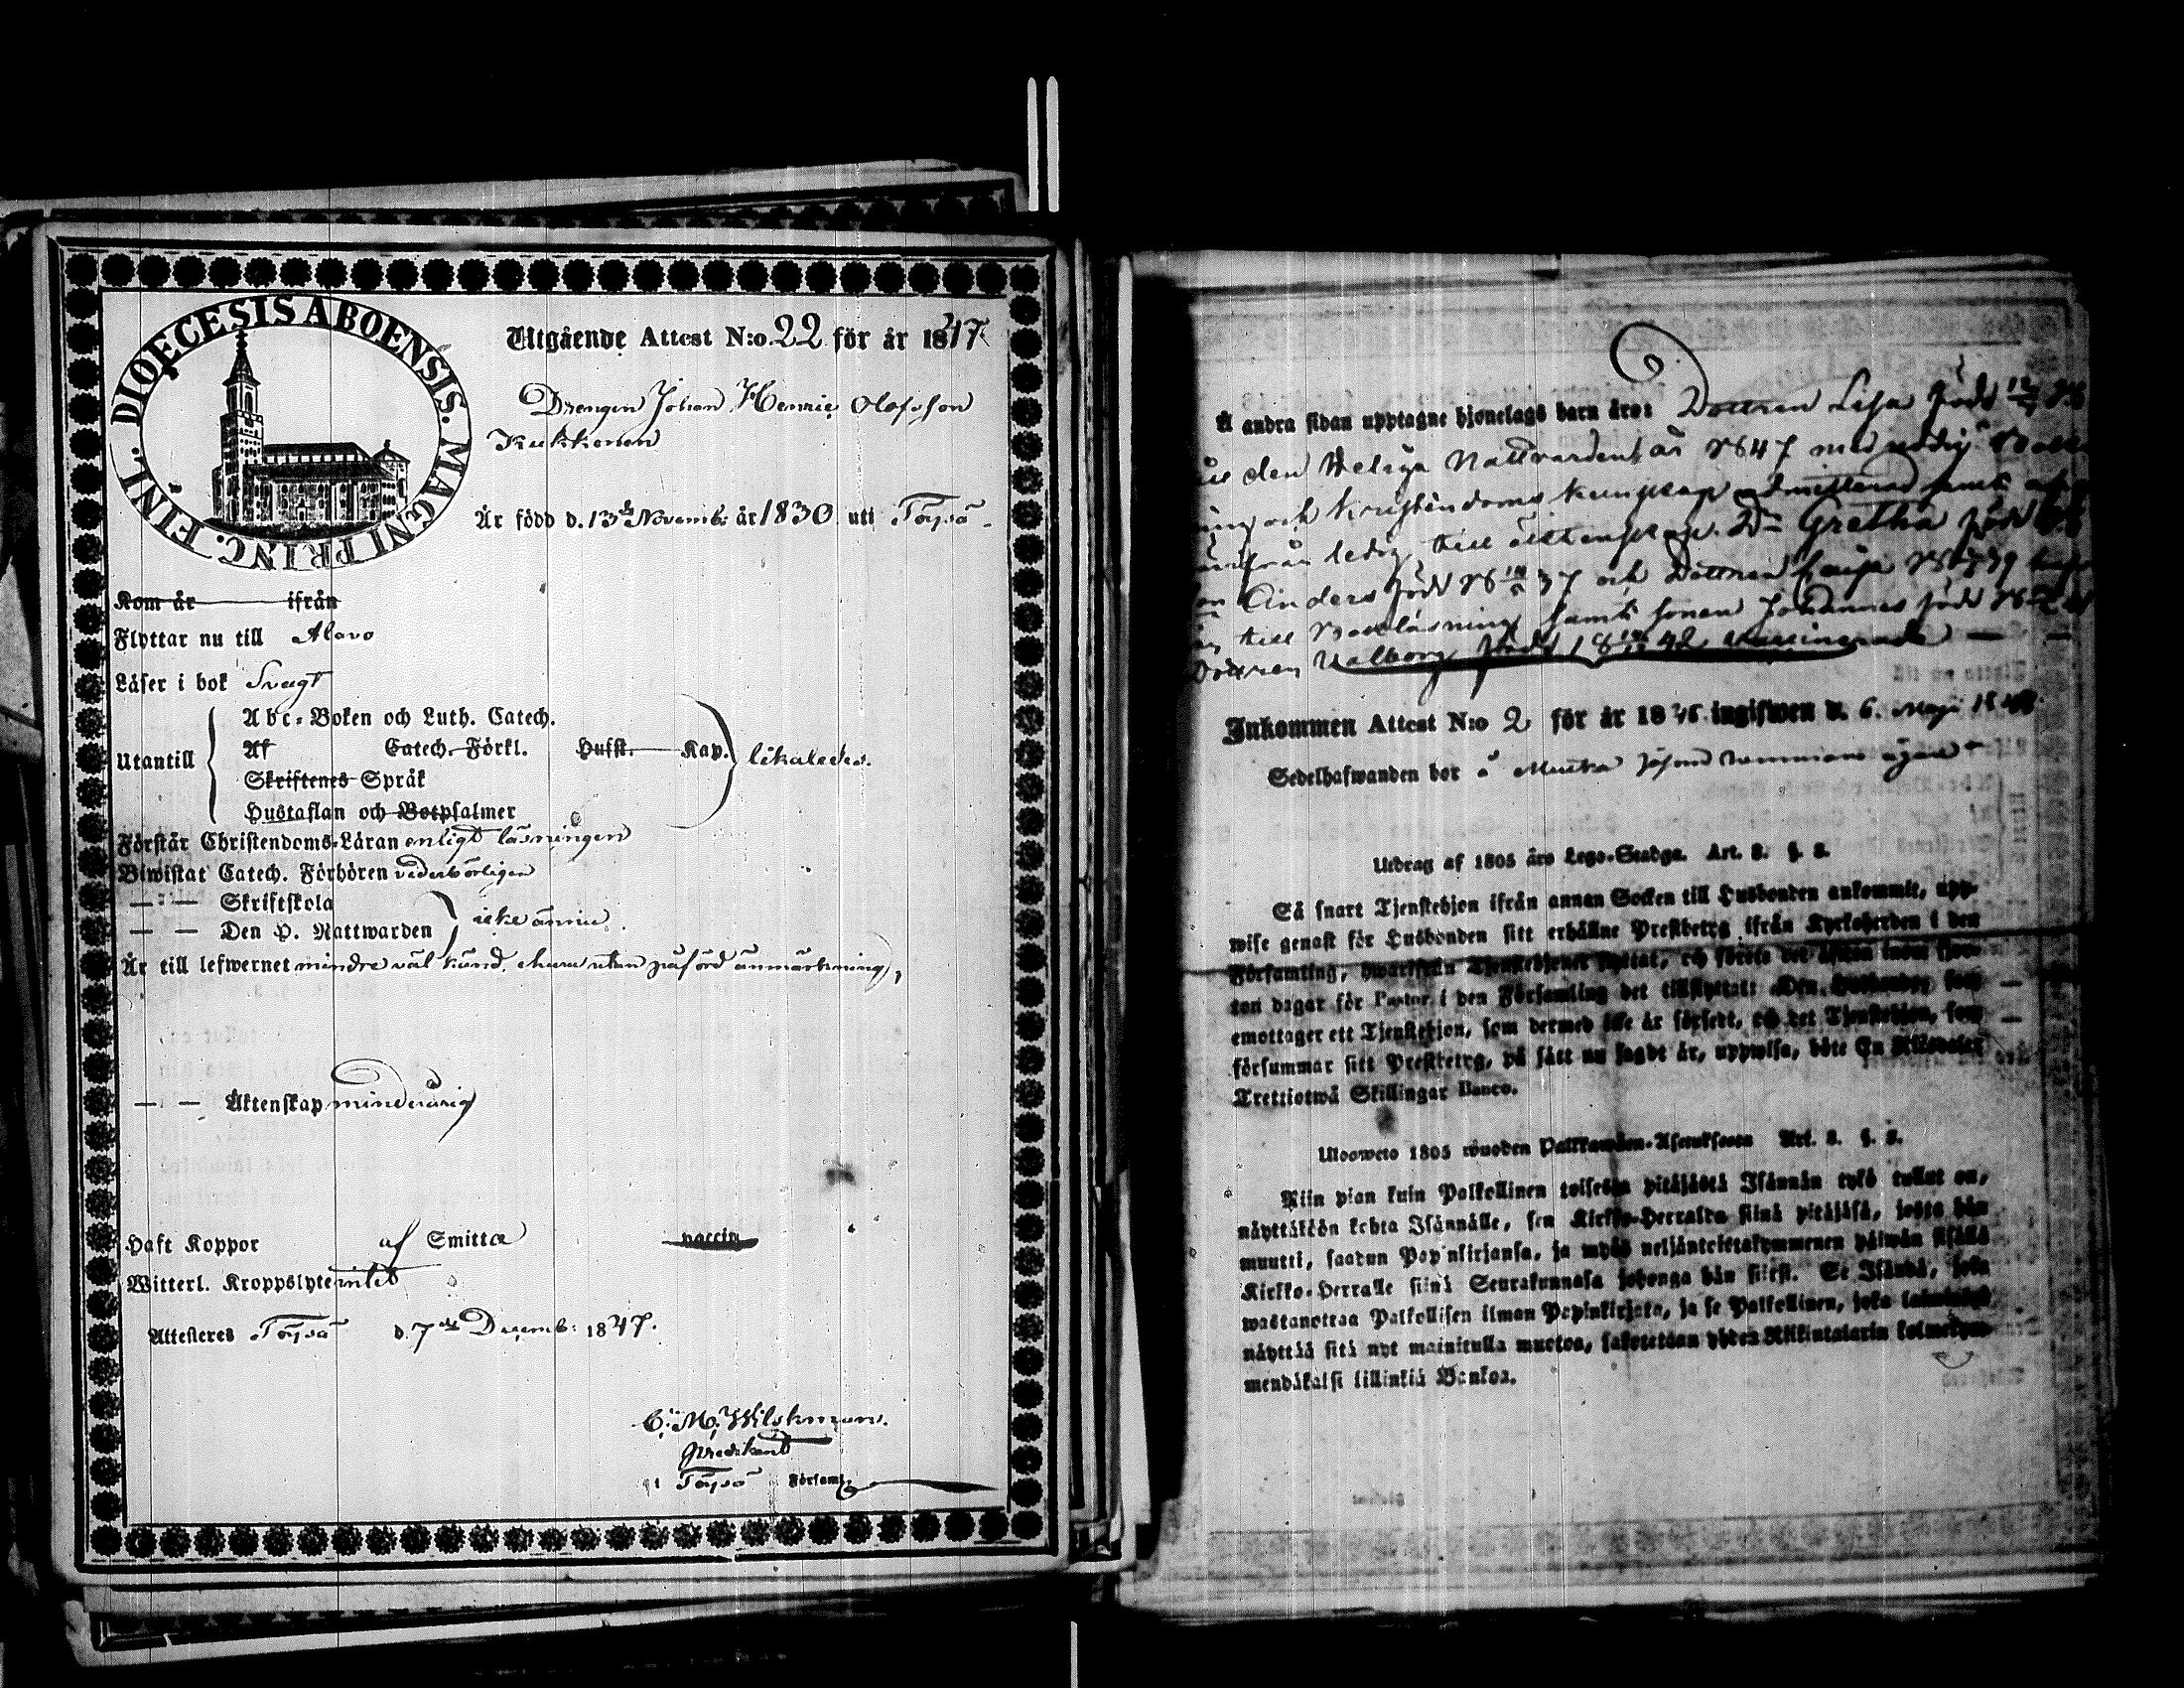 DIOECESIS ABOENSIS. MAGNI PRINC. FINL.
Utgående Attest N:o 22 för år 1847.
Drengen Johan Henric Olofsson
Kukkonen
Är född d. 13de Novemb: år 1830 uti Töysä
Kom år ifrån
Flyttar nu till Alavo
Läser i bok Svagt
Utantill
Abc-Boken och Luth. Catech.
Af Catech. Förkl. Hufst. Kap.
Skriftenes Språk
Hustaflan och Botpsalmer
likaledes.
Förstår Christendoms-Läran enligt läsningen
Biwistat Catech. Förhören vederbörligen
— — Skriftskola
— — Den H. Nattwarden
icke ännu.
Är till lefwernet mindre väl känd, ehuru utan påförd anmärkning,
— — Äktenskap minderårig
Haft Koppor af Smitta vaccin
Witterl. Kroppslyte intet
Attesteres Töysä d. 7de Decemb: 1847.
C. M. Wilskman.
Predikant
i Töysä Församl.
Å andra sidan upptagne hjonelags barn äro: Dottren Lisa född
den Heliga Nattvarden år 1847 med nödig
och Kristendoms kunskap admitterad samt
ledig till äktenskap. D:n Gretha född
Anders född 37 och Dottren
till samt sonen Johannes född
Dottren Valborg född 18 42 vaccinerade —
Inkommen Attest N:o 2 för år 18 ingifwen d. 6. Maji 1848.
Sedelhafwanden bor å
Utdrag af 1805 års Lego-Stadga. Art. 8. §. 2.
Så snart Tjenstehjon ifrån annan Socken till Husbonden ankommit, upp-
wise genast för Husbonden sitt erhållne Prestbetyg ifrån Kyrkoherden i den
Församling, hwarifrån Tjenstehjonet flyttat, och förete det äfwen inom fjor-
ton dagar för Pastor i den Församling det tillflyttat: Den Husbonde, som
emottager ett Tjenstehjon, som dermed icke är försedt, och det Tjenstehjon, som
försummar sitt Prestbetyg, på sätt nu sagdt är, uppwisa, böte En Riksdaler
Trettiotwå Skillingar Banco.
Uloswето 1805 wuoden Palkkawäen-Asetuksesta Art. 8. §. 2.
Niin pian kuin Palkollinen toisesta pitäjästä Isännän tykö tullut on,
näyttäköön kohta Isännälle, sen Kirkko-Herralta siinä pitäjäsä, josta hän
muutti, saadun Papinkirjansa, ja myös neljäntoistakymmenen päiwän sisällä
Kirkko-Herralle siinä Seurakunnasa johonga hän siirsi. Se Isändä, joka
wastanottaa Palkollisen ilman Papinkirjata, ja se Palkollinen, joka
näyttää sitä nyt mainitulla muotoa, sakotetaan yhden Riikintalarin kolmekym-
mendäkaksi killinkiä Bankoa.